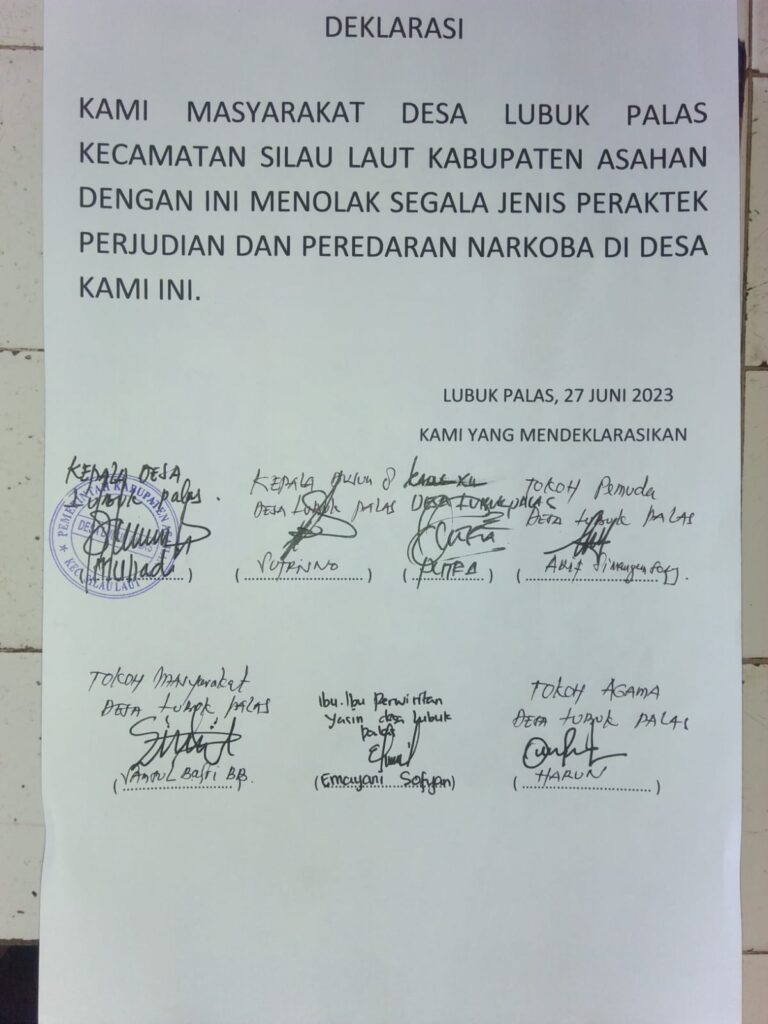 DEKLARASI
KAMI MASYARAKAT DESA LUBUK PALAS
KECAMATAN SILAU LAUT KABUPATEN ASAHAN
DENGAN INI MENOLAK SEGALA JENIS PERAKTEK
PERJUDIAN DAN PEREDARAN NARKOBA DI DESA
KAMI INI.
LUBUK PALAS, 27 JUNI 2023
KAMI YANG MENDEKLARASIKAN
KEPALA DESA
Lubuk palas.
PEMERINTAH KABUPATEN
KEC. SILAU LAUT
(Muliadi)
KEPALA Dusun 8
DESA Lubuk PALAS
(SUTRISNO)
DESA Lubuk PALAS
(PUTRA)
TOKOH Pemuda
DESA Lubuk PALAS
(Arif)
TOKOH Masyarakat
DESA Lubuk PALAS
(BB.)
Ibu-Ibu Perwiritan
Yasin desa Lubuk
palas
(Emayani Sofyan)
TOKOH AGAMA
DESA Lubuk PALAS
(HARUN)